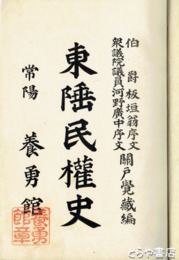 伯爵板垣翁序文
衆議院議員河野廣中序文
關戸覺藏編
東陲民權史
常陽 養勇館
養勇館章
とらや書店